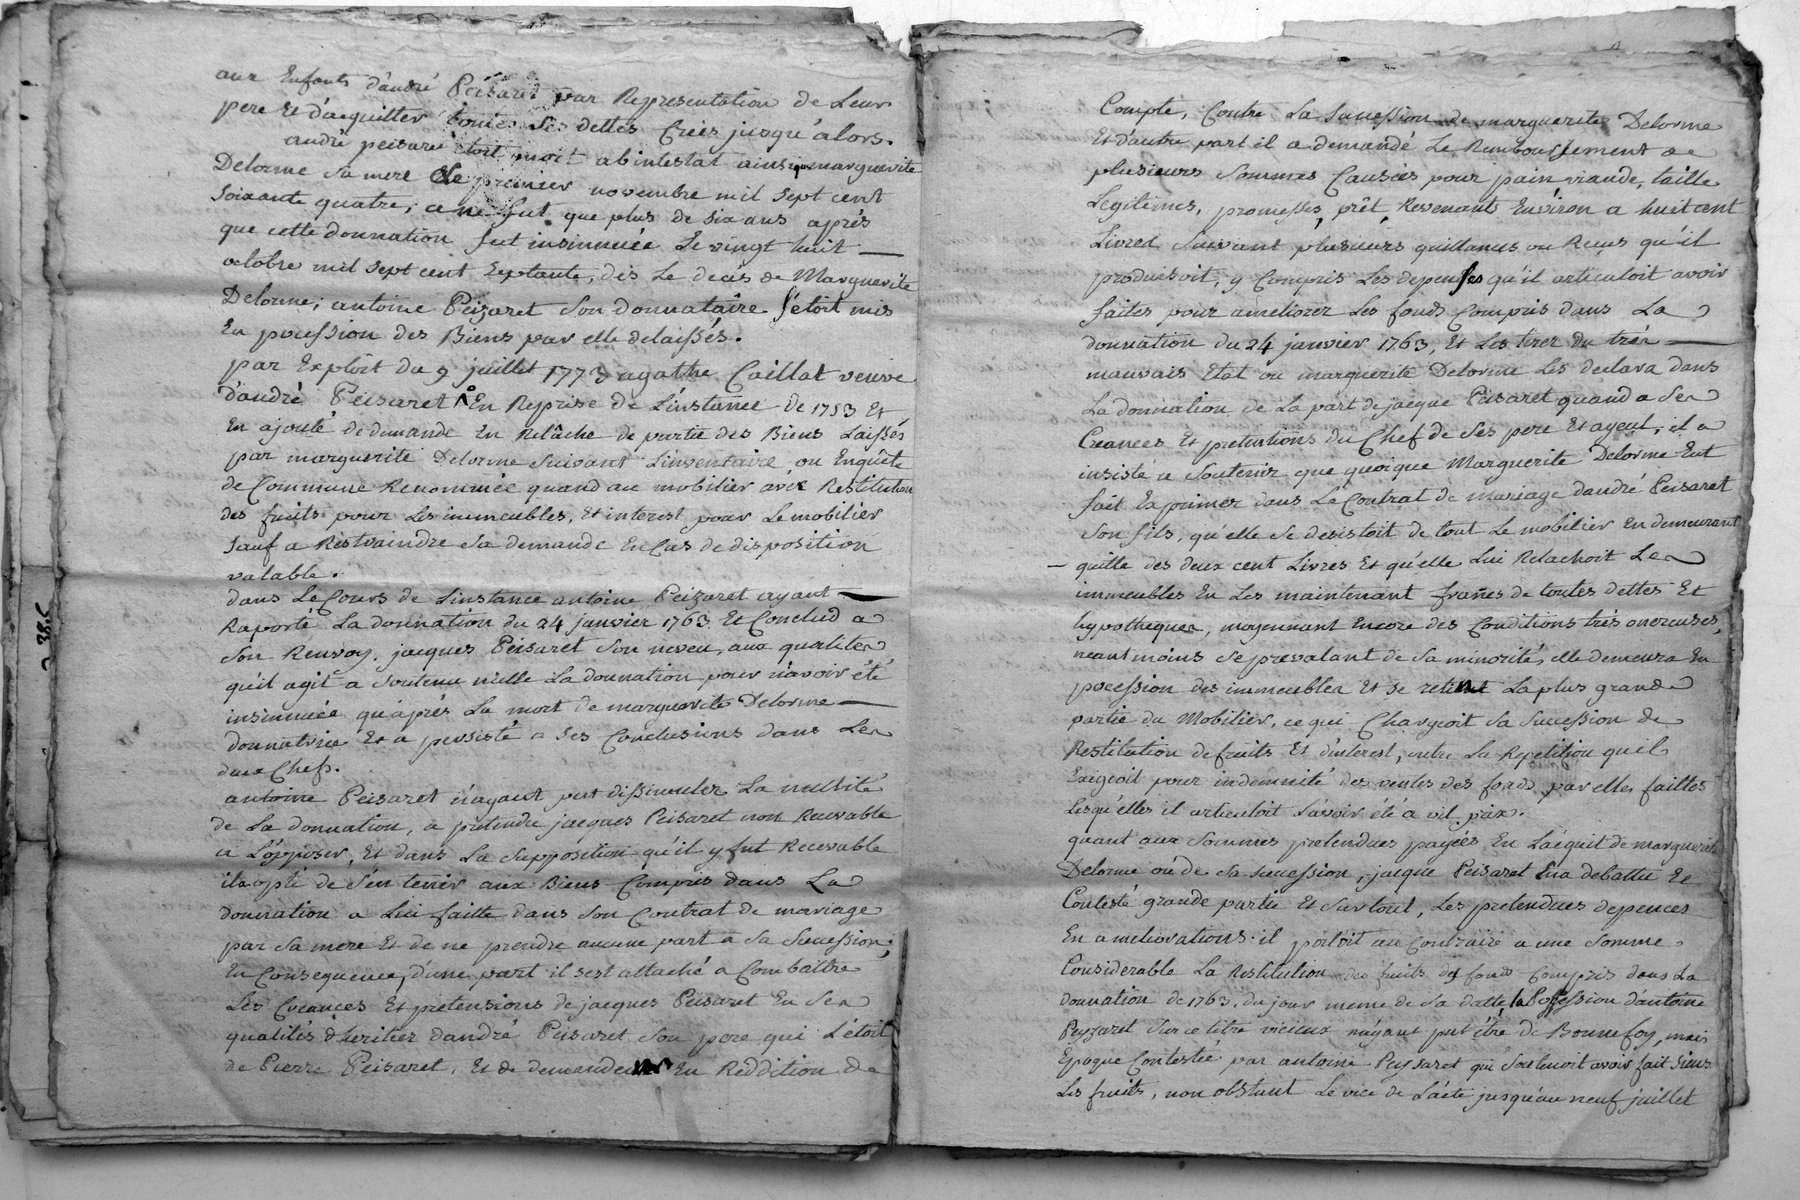 aux Enfants d'andré Peisaret par Representation de Leur
pere Et d'acquitter toutes Ses dettes Creés jusqu'alors.
andré peisaret etoit mort abintestat ainsi que marguerite
Delorme Sa mere Le premier novembre mil Sept cent
Soixante quatre, ce ne fut que plus de Six ans aprés
que cette donnation fut insinnuée Le vingt huit
octobre mil Sept cent Septante, dés Le decés de Marguerite
Delorme; antoine Peizaret Son donnataire S'étoit mis
En pocession des Biens par elle delaissés.
par Exploit du 9 juillet 1773 agathe Caillat veuve
d'andré Peisaret En Reprise de L'instance de 1753 Et
En ajouté de demande En Relâche de partie des Biens Laissés
par marguerite Delorme Suivant L'inventaire ou Enquête
de Commune Renommée quand au mobilier avec Restitution
des fruits pour Les immeubles, Et interest pour Le mobilier
Sauf a Restraindre Sa demande En Cas de disposition
valable.
dans Le Cours de L'instance antoine Peizaret ayant
Raporté La donnation du 24 janvier 1763 Et Conclud a
Son Renvoy. jacques Peisaret Son neveu, aux qualités
qu'il agit a Soutenu nulle La donnation pour n'avoir été
insinnuée qu'aprés La mort de marguerite Delorme
donnatrice Et a persisté a Ses Conclusions dans Les
deux Chefs.
antoine Peisaret n'ayant put dissimuler La nullité
de La donnation, a pretendu jacques Peisaret non Recevable
a L'opposer, Et dans La Supposition qu'il y fut Recevable
il a opté de S'en tenir aux Biens Compris dans La
donnation a Lui faitte dans Son Contrat de mariage
par Sa mere Et de ne prendre aucune part a Sa Succession;
En Consequence, d'une part il s'est attaché a Combattre
Les Creances Et pretensions de jacques Peisaret En Ses
qualités d'heritier d'andré Peisaret Son pere qui L'étoit
de Pierre Peisaret, Et de demandeur En Reddition de
Compte, Contre La Succession de marguerite Delorme
Et d'autre part il a demandé Le Remboursement de
plusieurs Sommes Causées pour pain viande, taille
Legitimes, promesses, prêt Revenants Environ a huit cent
Livres Suivant plusieurs quittances ou Recus qu'il
produisoit, y Compris Les depenses qu'il articuloit avoir
faites pour ameliorer Les fonds Compris dans La
donnation du 24 janvier 1763, Et Les tirer du trés
mauvais Etat ou marguerite Delorme Les declara dans
La donnation de La part de jacque Peisaret quand a Ses
Creances Et pretentions du Chef de Ses pere Et ayeul, il a
insisté a Soutenir que quoique Marguerite Delorme Eut
fait Exprimer dans Le Contrat de mariage d'andré Peisaret
Son fils, qu'elle Se desistoit de tout Le mobilier En demeurant
quitte des deux cent Livres Et qu'elle Lui Relachoit Les
immeubles En Les maintenant francs de toutes dettes Et
hypotheques, moyennant Encore des Conditions trés onereuses,
neantmoins Se prevalant de Sa minorité, elle demeura En
pocession des immeubles Et Se retint La plus grande
partie du Mobilier, ce qui Chargeoit Sa Succession de
Restitution de fruits Et d'interest, outre La Repetition qu'il
Exigeoit pour indemnité des ventes des fonds par elle faittes
Lesqu'elles il articuloit S'avoir été a vil prix.
quant aux Sommes pretendues payées En L'acquit de marguerite
Delorme ou de Sa Succession, jacque Peisaret En a debattu Et
Contesté grande partie Et Surtout, Les pretendues depences
En ameliorations. il portoit au Contraire a une Somme
Considerable La Restitution des fruits des fonds Compris dans La
donnation de 1763. du jour meme de Sa datte la Possession d'antoine
Peyzaret Sur ce titre vicieux n'ayant put être de Bonne foy, mais
Epoque Contestée par antoine Peysaret qui Soutenoit avoir fait Siens
Les fruits, non obstant Le vice de L'acte jusqu'au neuf juillet